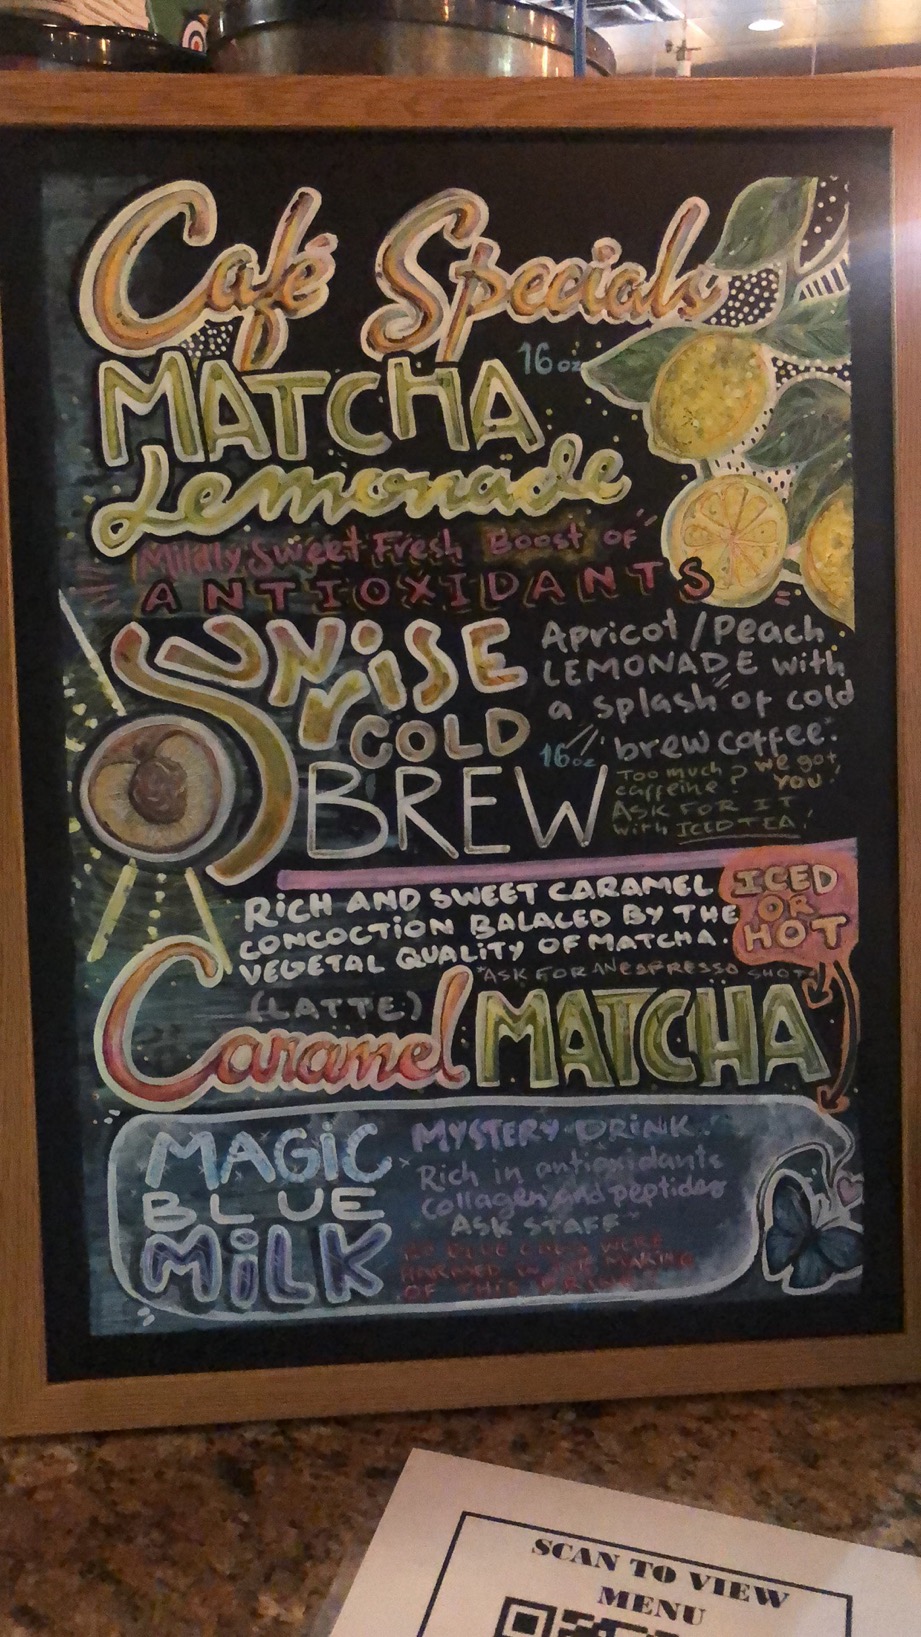 Café Specials
MATCHA 16oz
Lemonade
Mildly Sweet Fresh Boost of
ANTIOXIDANTS
SUNRISE
COLD
BREW
Apricot/Peach
LEMONADE with
a splash of cold
16oz brew coffee.
Too much caffeine? We got you!
ASK FOR IT
with ICED TEA!
RICH AND SWEET CARAMEL
CONCOCTION BALACED BY THE
VEGETAL QUALITY OF MATCHA.
ICED
OR
HOT
*ASK FOR AN ESPRESSO SHOT
(LATTE)
Caramel MATCHA
MAGIC
BLUE
MILK
MYSTERY DRINK
Rich in antioxidants
collagen and peptides
ASK STAFF
NO BLUE COWS WERE
HARMED IN THE MAKING
OF THIS DRINK
SCAN TO VIEW
MENU